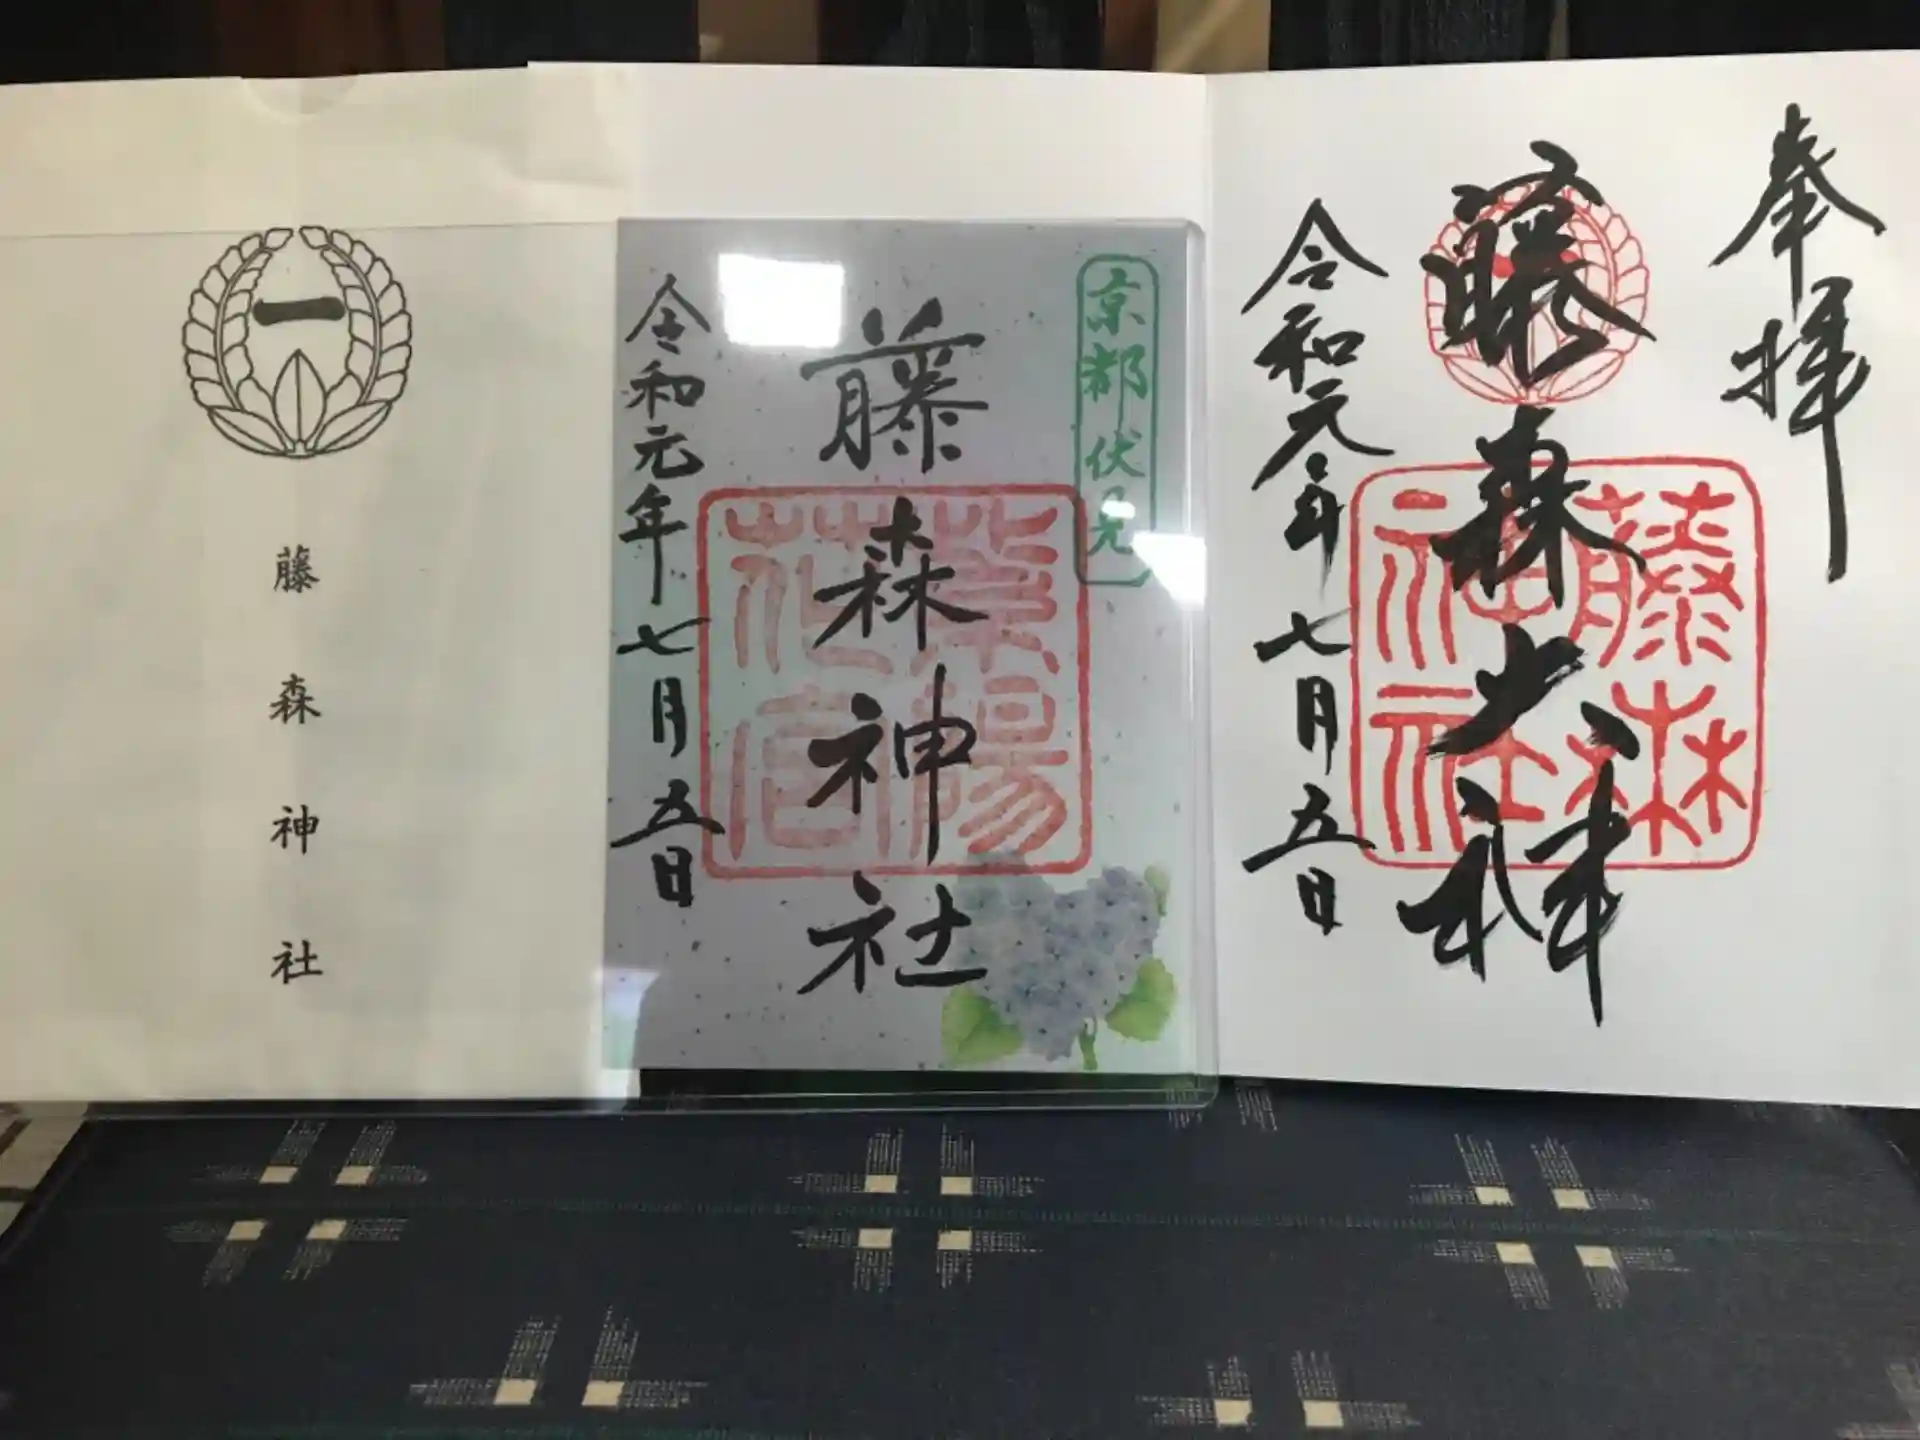 一
藤森神社
京都伏見
藤森神社
紫陽花宮
令和元年七月五日
奉拝
藤森大神
藤森神社
令和元年七月五日